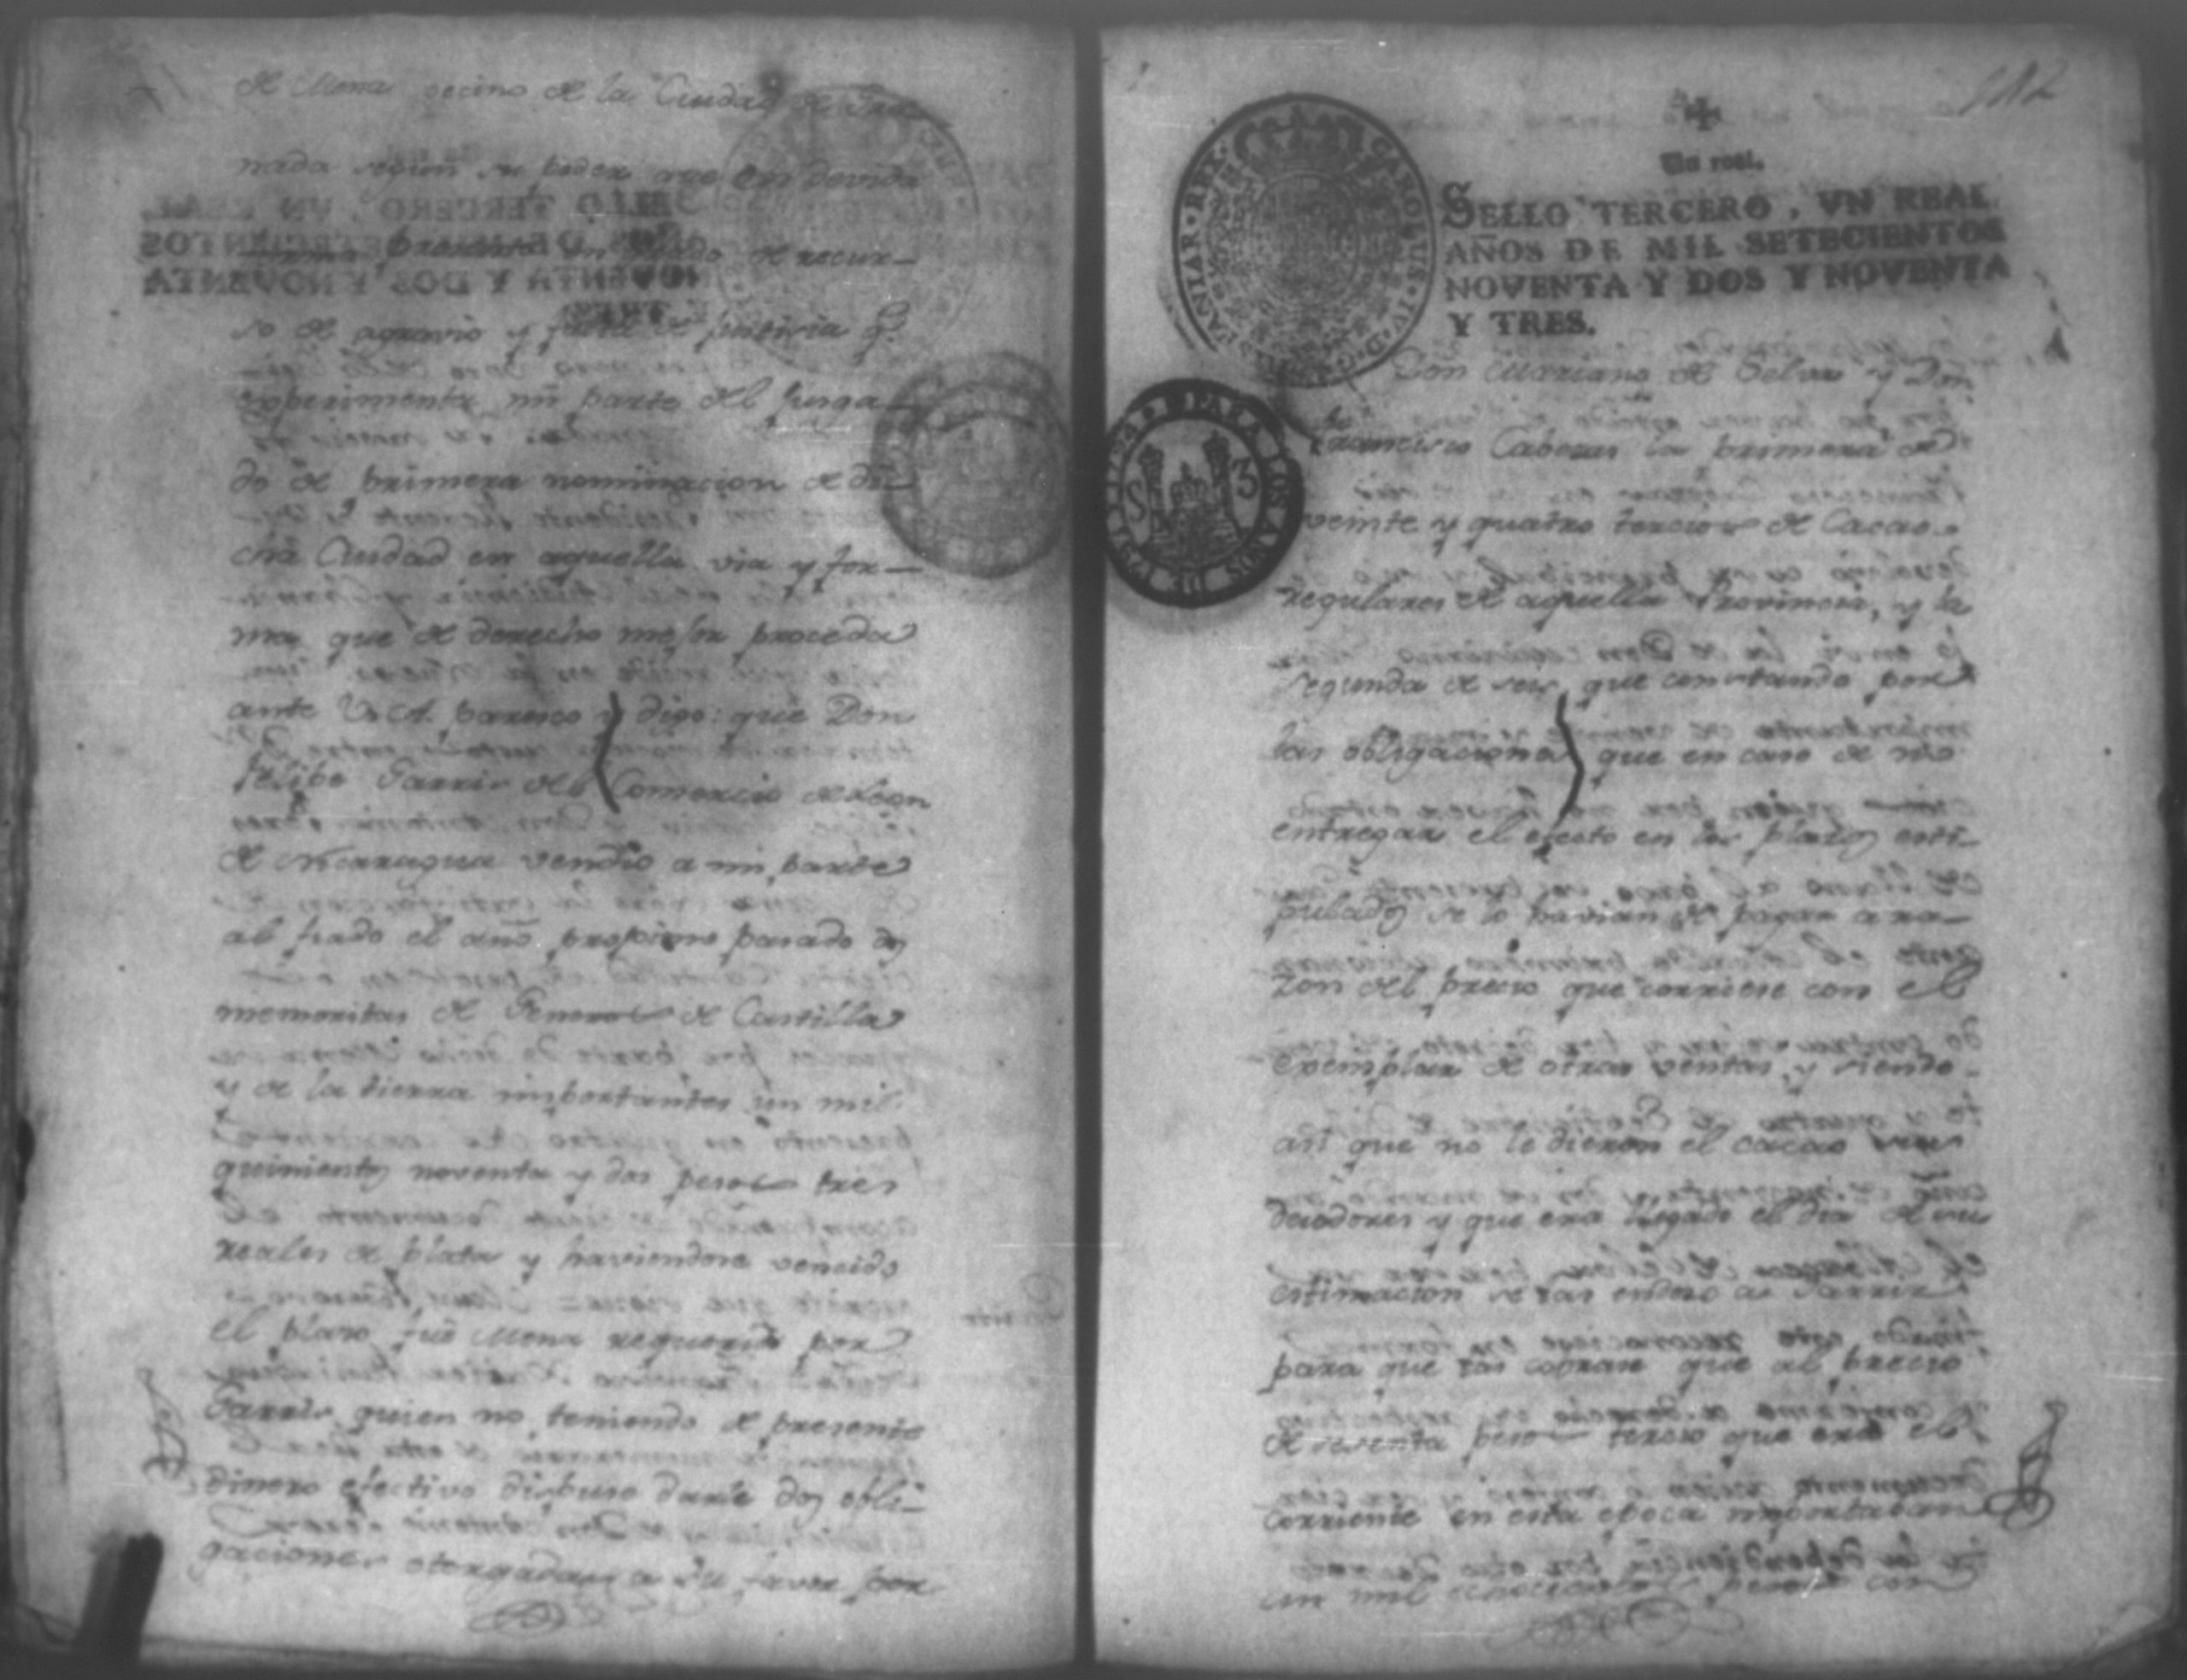 de Mena vecino de la Ciudad de Gra-
nada segun su poder que en devida
forma presento en grado de recur-
so de agravio y falta de justicia q.e
experimenta mi parte del Juzga-
do de primera nominacion de di-
cha Ciudad en aquella via y for-
ma que de derecho mejor proceda
ante V. A. paresco y digo: que Don
Felipe Garris del Comercio de Leon
de Nicaragua vendio a mi parte
al fiado el año proximo pasado dos
memoritas de Generos de Castilla
y de la tierra importantes un mil
quinientos noventa y dos pesos tres
reales de plata y haviendose vencido
el plazo fue Mena requerido por
Garris quien no teniendo de presente
dinero efectivo dispuso darle dos obli-
gaciones otorgadas a su favor por
112
Un real.
SELLO TERCERO, VN REAL,
AÑOS DE MIL SETECIENTOS
NOVENTA Y DOS Y NOVENTA
Y TRES.
CAROLUS IV D G HISPANIAR REX
PARA LOS AÑOS DE
S 3
Don Mariano de y Don
Francisco Cabezas la primera de
veinte y quatro tercios de Cacao
regulares de aquella Provincia, y la
segunda de seis, que constando por
las obligaciones que en caso de no
entregar el efecto en los plazos esti-
pulados se lo havian de pagar a ra-
zon del precio que corriese con el
exemplar de otras ventas, y siendo
asi que no le dieron el cacao sus
deudores y que era llegado el dia de su
estimacion se las endoso a Garris
para que las cobrase que al precio
de sesenta pesos tercio que era el
corriente en esta epoca importaban
un mil ochocientos pesos con